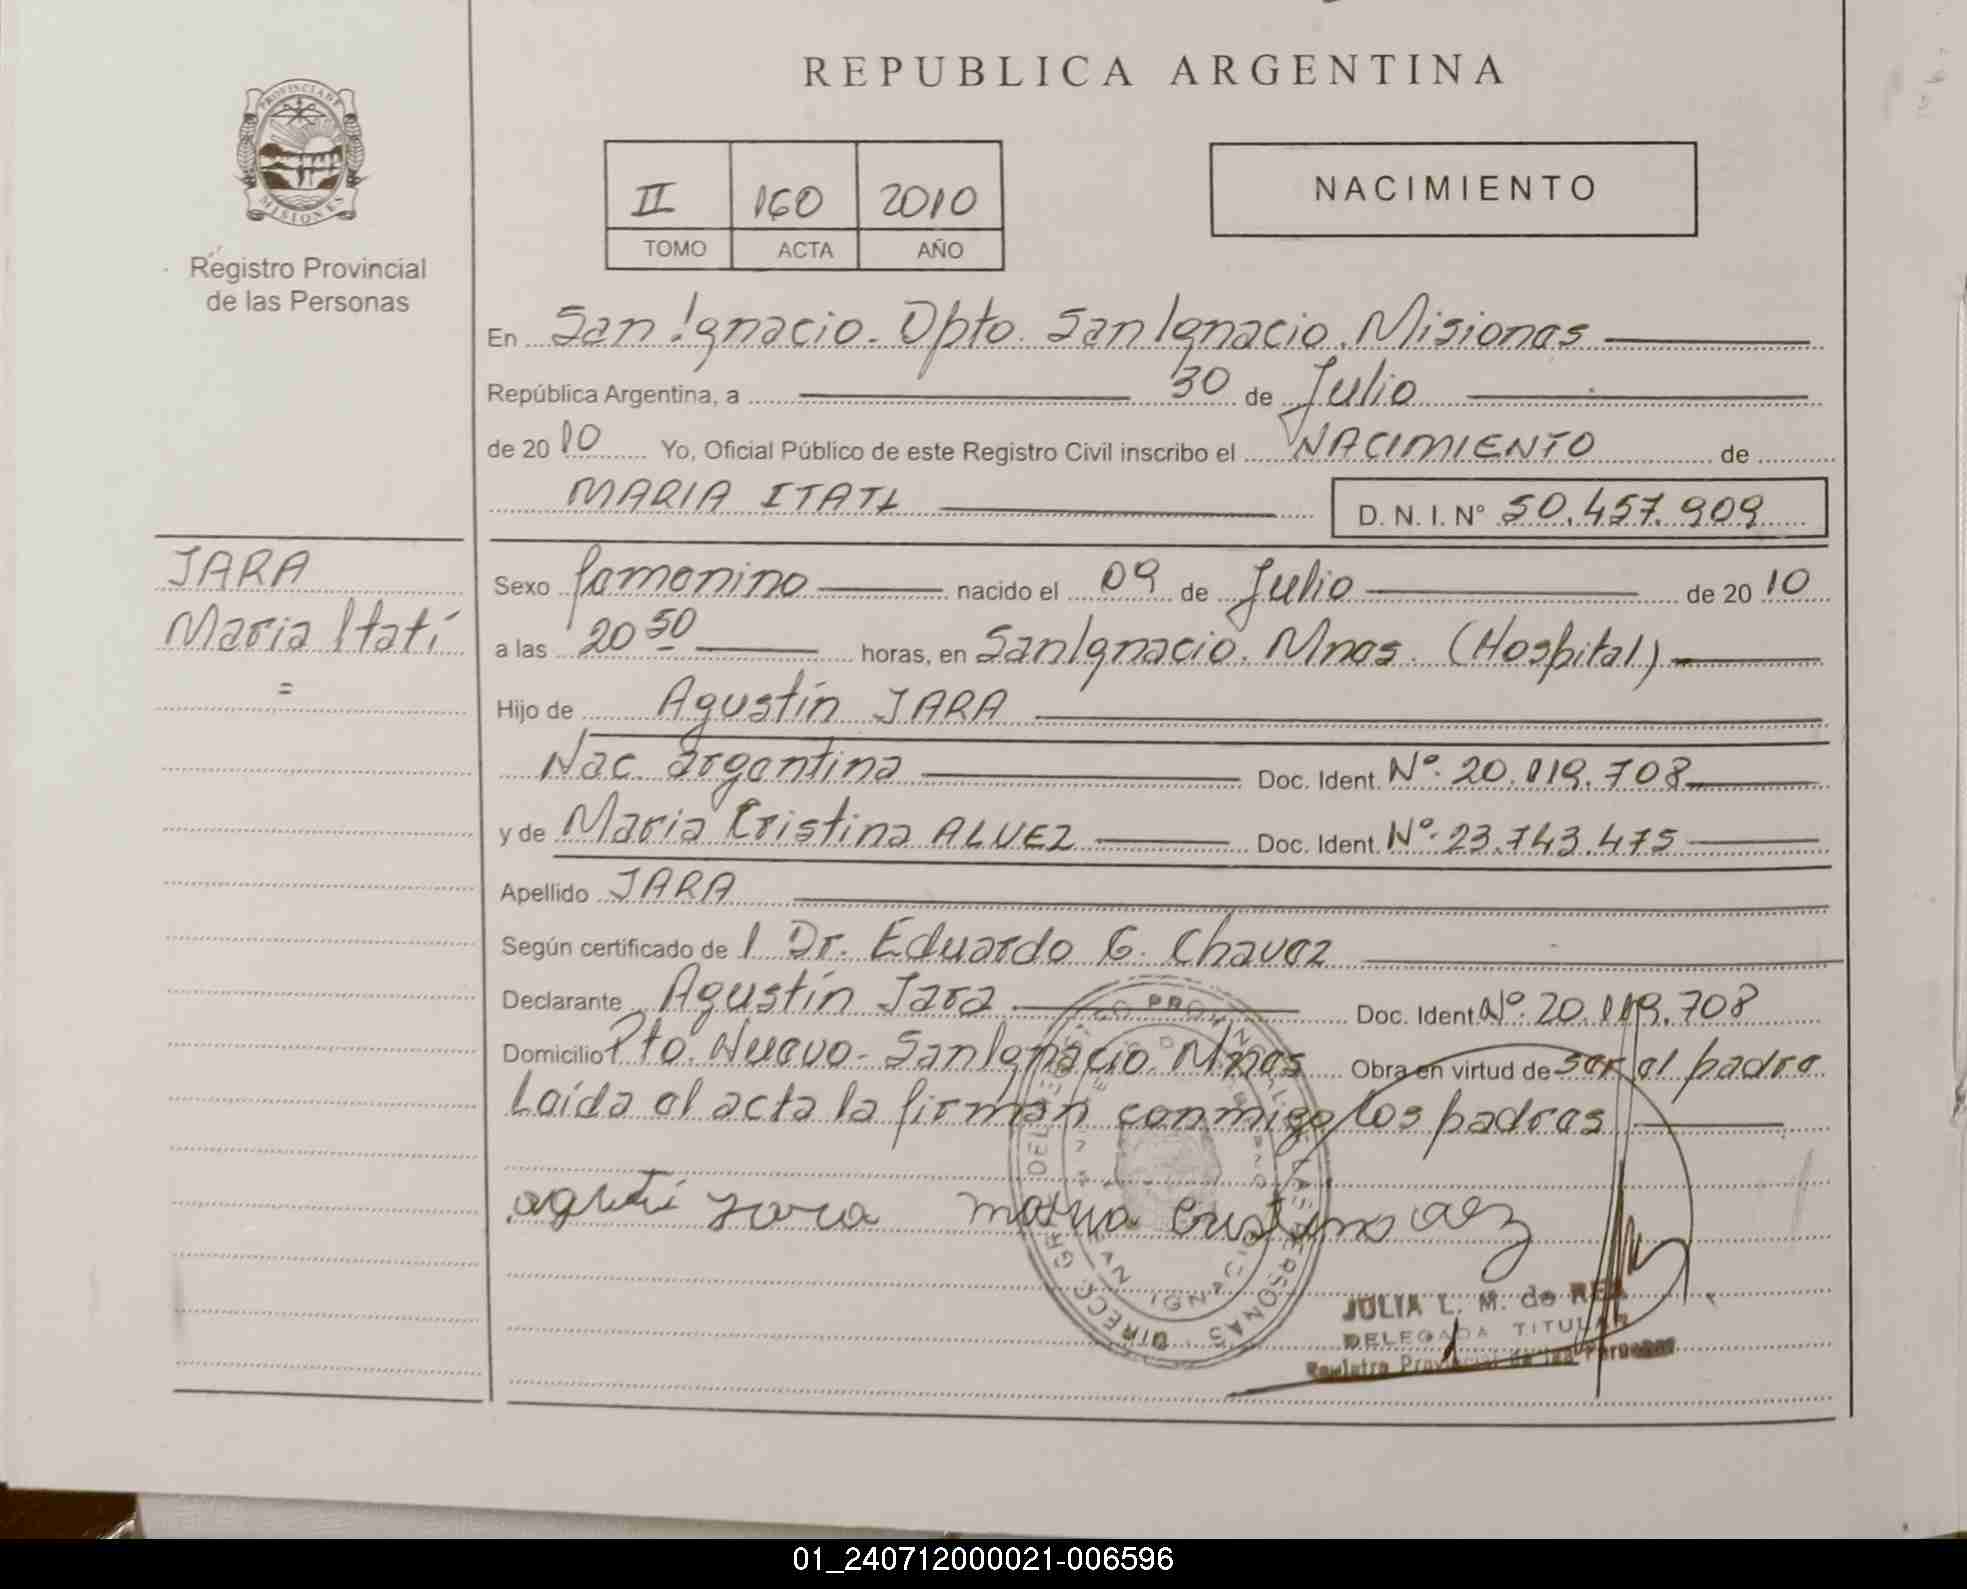 REPUBLICA ARGENTINA
PROVINCIA DE MISIONES
Registro Provincial
de las Personas
II 160 2010
TOMO ACTA AÑO
NACIMIENTO
En San Ignacio. Dpto. San Ignacio. Misiones
República Argentina, a 30 de Julio
de 2010 Yo, Oficial Público de este Registro Civil inscribo el NACIMIENTO de
MARIA ITATI D. N. I. N° 50.457.909
JARA
Maria Itatí
=
Sexo femenino nacido el 09 de Julio de 2010
a las 20 50 horas, en San Ignacio. Mnes. (Hospital)
Hijo de Agustín JARA
Nac. argentina Doc. Ident. Nº. 20.119.708
y de Maria Cristina ALVEZ Doc. Ident. Nº. 23.743.475
Apellido JARA
Según certificado de l Dr. Eduardo G. Chavez
Declarante Agustín Jara Doc. Ident. Nº. 20.119.708
Domicilio Pto. Nuevo. San Ignacio. Mnes Obra en virtud de ser el padre
Leída el acta la firman conmigo los padres
JULIA L. M. de REA
DELEGADA TITULAR
Registro Provincial de las Personas
01_240712000021-006596